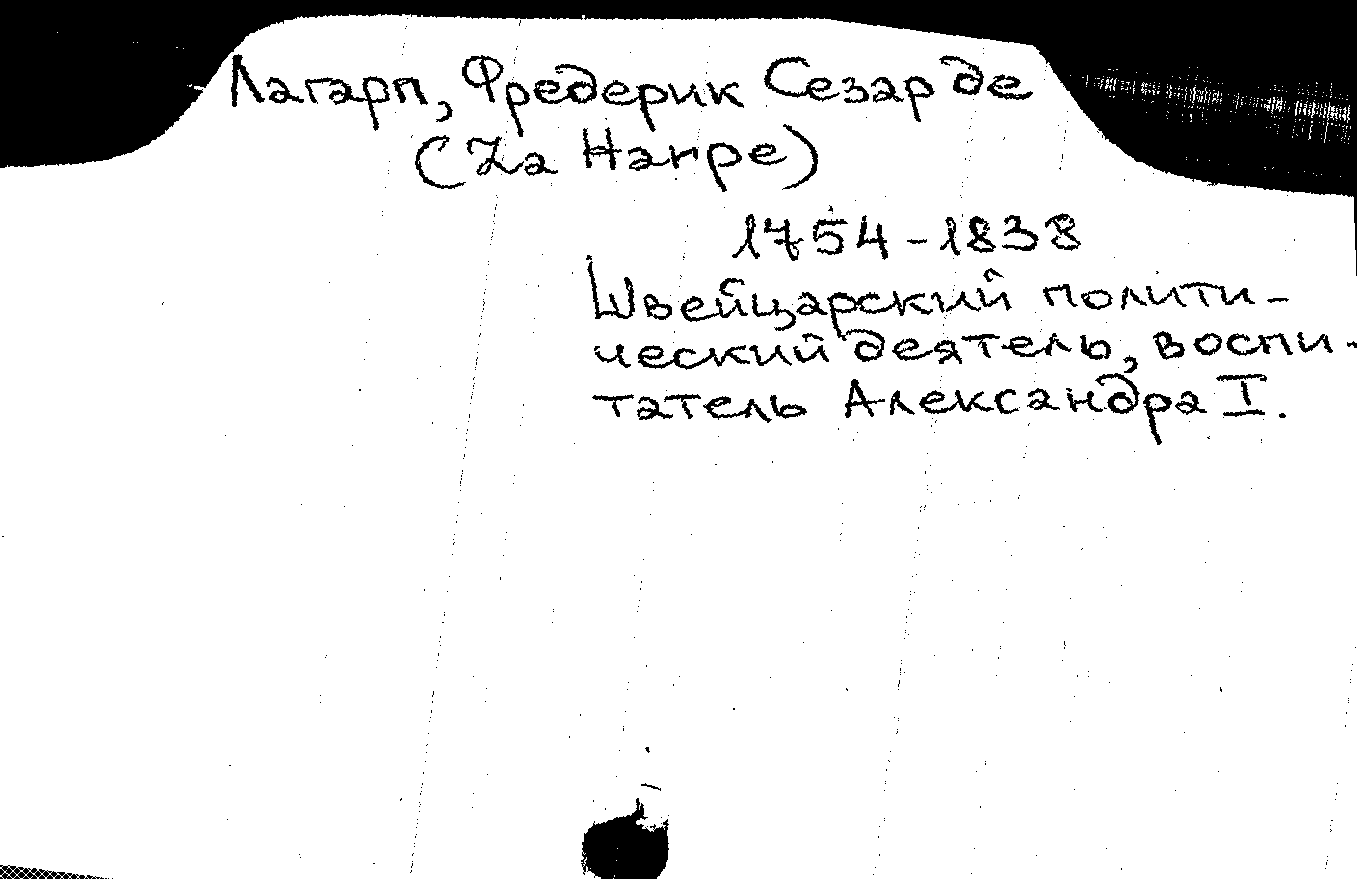 Лагарп, Фредерик Сезар де
(La Harpe)
1754-1838
Швейцарский полити-
ческий деятель, воспи-
татель Александра I.